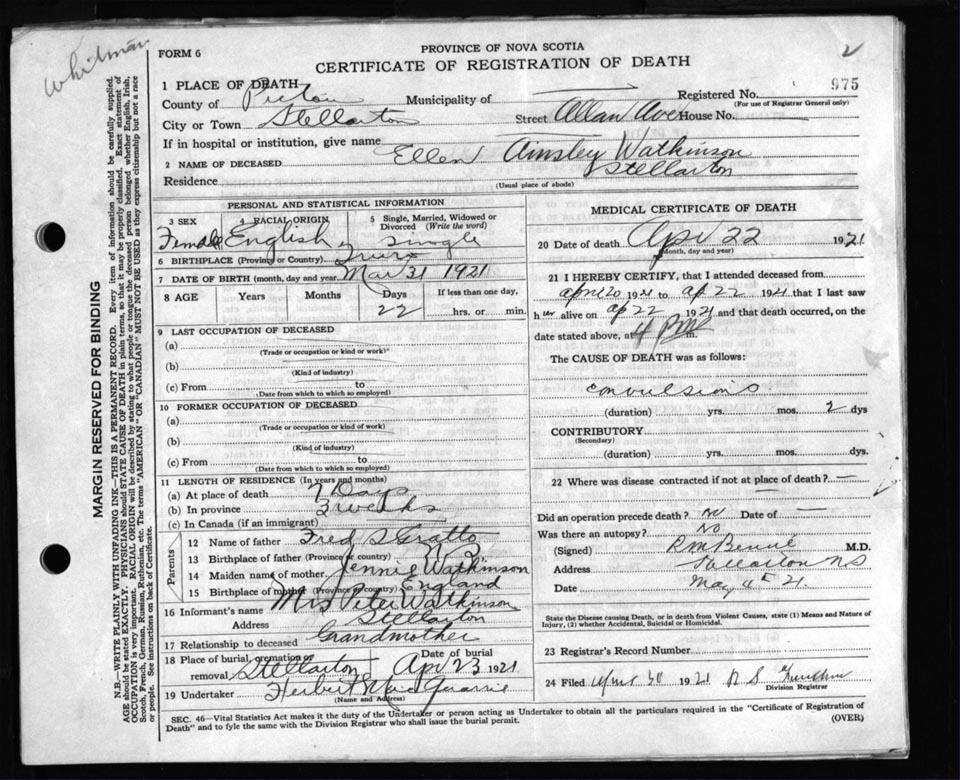 Whitman
FORM 6
PROVINCE OF NOVA SCOTIA
CERTIFICATE OF REGISTRATION OF DEATH
2
975
1 PLACE OF DEATH
County of Pictou Municipality of Registered No.
(For use of Registrar General only)
City or Town Stellarton Street Allan Ave House No.
If in hospital or institution, give name
2 NAME OF DECEASED Ellen Ainsley Watkinson
Residence Stellarton
(Usual place of abode)
PERSONAL AND STATISTICAL INFORMATION
3 SEX 4 RACIAL ORIGIN 5 Single, Married, Widowed or Divorced (Write the word)
Female English Single
6 BIRTHPLACE (Province or Country) Truro
7 DATE OF BIRTH (month, day and year) Mar 31 1921
8 AGE Years Months Days If less than one day,
22 hrs. or min.
9 LAST OCCUPATION OF DECEASED
(a)
(Trade or occupation or kind or work)
(b)
(Kind of industry)
(c) From to
(Date from which to which so employed)
10 FORMER OCCUPATION OF DECEASED
(a)
(Trade or occupation or kind of work)
(b)
(Kind of industry)
(c) From to
(Date from which to which so employed)
11 LENGTH OF RESIDENCE (In years and months)
(a) At place of death 7 Days
(b) In province 3 weeks
(c) In Canada (if an immigrant)
Parents
12 Name of father Fred S Gratto
13 Birthplace of father (Province or country)
14 Maiden name of mother Jennie Watkinson
15 Birthplace of mother (Province or country) England
16 Informant's name Mrs Peter Watkinson
Address Stellarton
17 Relationship to deceased Grandmother
18 Place of burial, cremation or removal Stellarton Date of burial Apr 23 1921
19 Undertaker Herbert
(Name and Address)
MEDICAL CERTIFICATE OF DEATH
20 Date of death Apr 22 1921
(Month, day and year)
21 I HEREBY CERTIFY, that I attended deceased from
April 20 1921 to Ap 22 1921 that I last saw
her alive on ap 22 1921 and that death occurred, on the
date stated above, at 4 PM m.
The CAUSE OF DEATH was as follows:
convulsions
(duration) yrs. mos. 2 dys
CONTRIBUTORY
(Secondary)
(duration) yrs. mos. dys.
22 Where was disease contracted if not at place of death? —
Did an operation precede death? No Date of —
Was there an autopsy? No
(Signed) M.D.
Address Stellarton NS
Date May 4th 21.
State the Disease causing Death, or in death from Violent Causes, state (1) Means and Nature of Injury, (2) whether Accidental, Suicidal or Homicidal.
23 Registrar's Record Number
24 Filed 30 1921 R S
Division Registrar
SEC. 46—Vital Statistics Act makes it the duty of the Undertaker or person acting as Undertaker to obtain all the particulars required in the "Certificate of Registration of
Death" and to fyle the same with the Division Registrar who shall issue the burial permit.
(OVER)
MARGIN RESERVED FOR BINDING
N.B.—WRITE PLAINLY WITH UNFADING INK—THIS IS A PERMANENT RECORD. Every item of information should be carefully supplied.
AGE should be stated EXACTLY. PHYSICIANS should STATE CAUSE OF DEATH in plain terms, so that it may be properly classified. Exact statement of
OCCUPATION is very important. RACIAL ORIGIN will be described by stating to what people or tongue the deceased person belonged whether English, Irish,
Scotch, French, German, Russian, Ruthenian, etc. The terms "AMERICAN" OR "CANADIAN" MUST NOT BE USED as they express citizenship but not a race
or people. See instructions on back of Certificate.